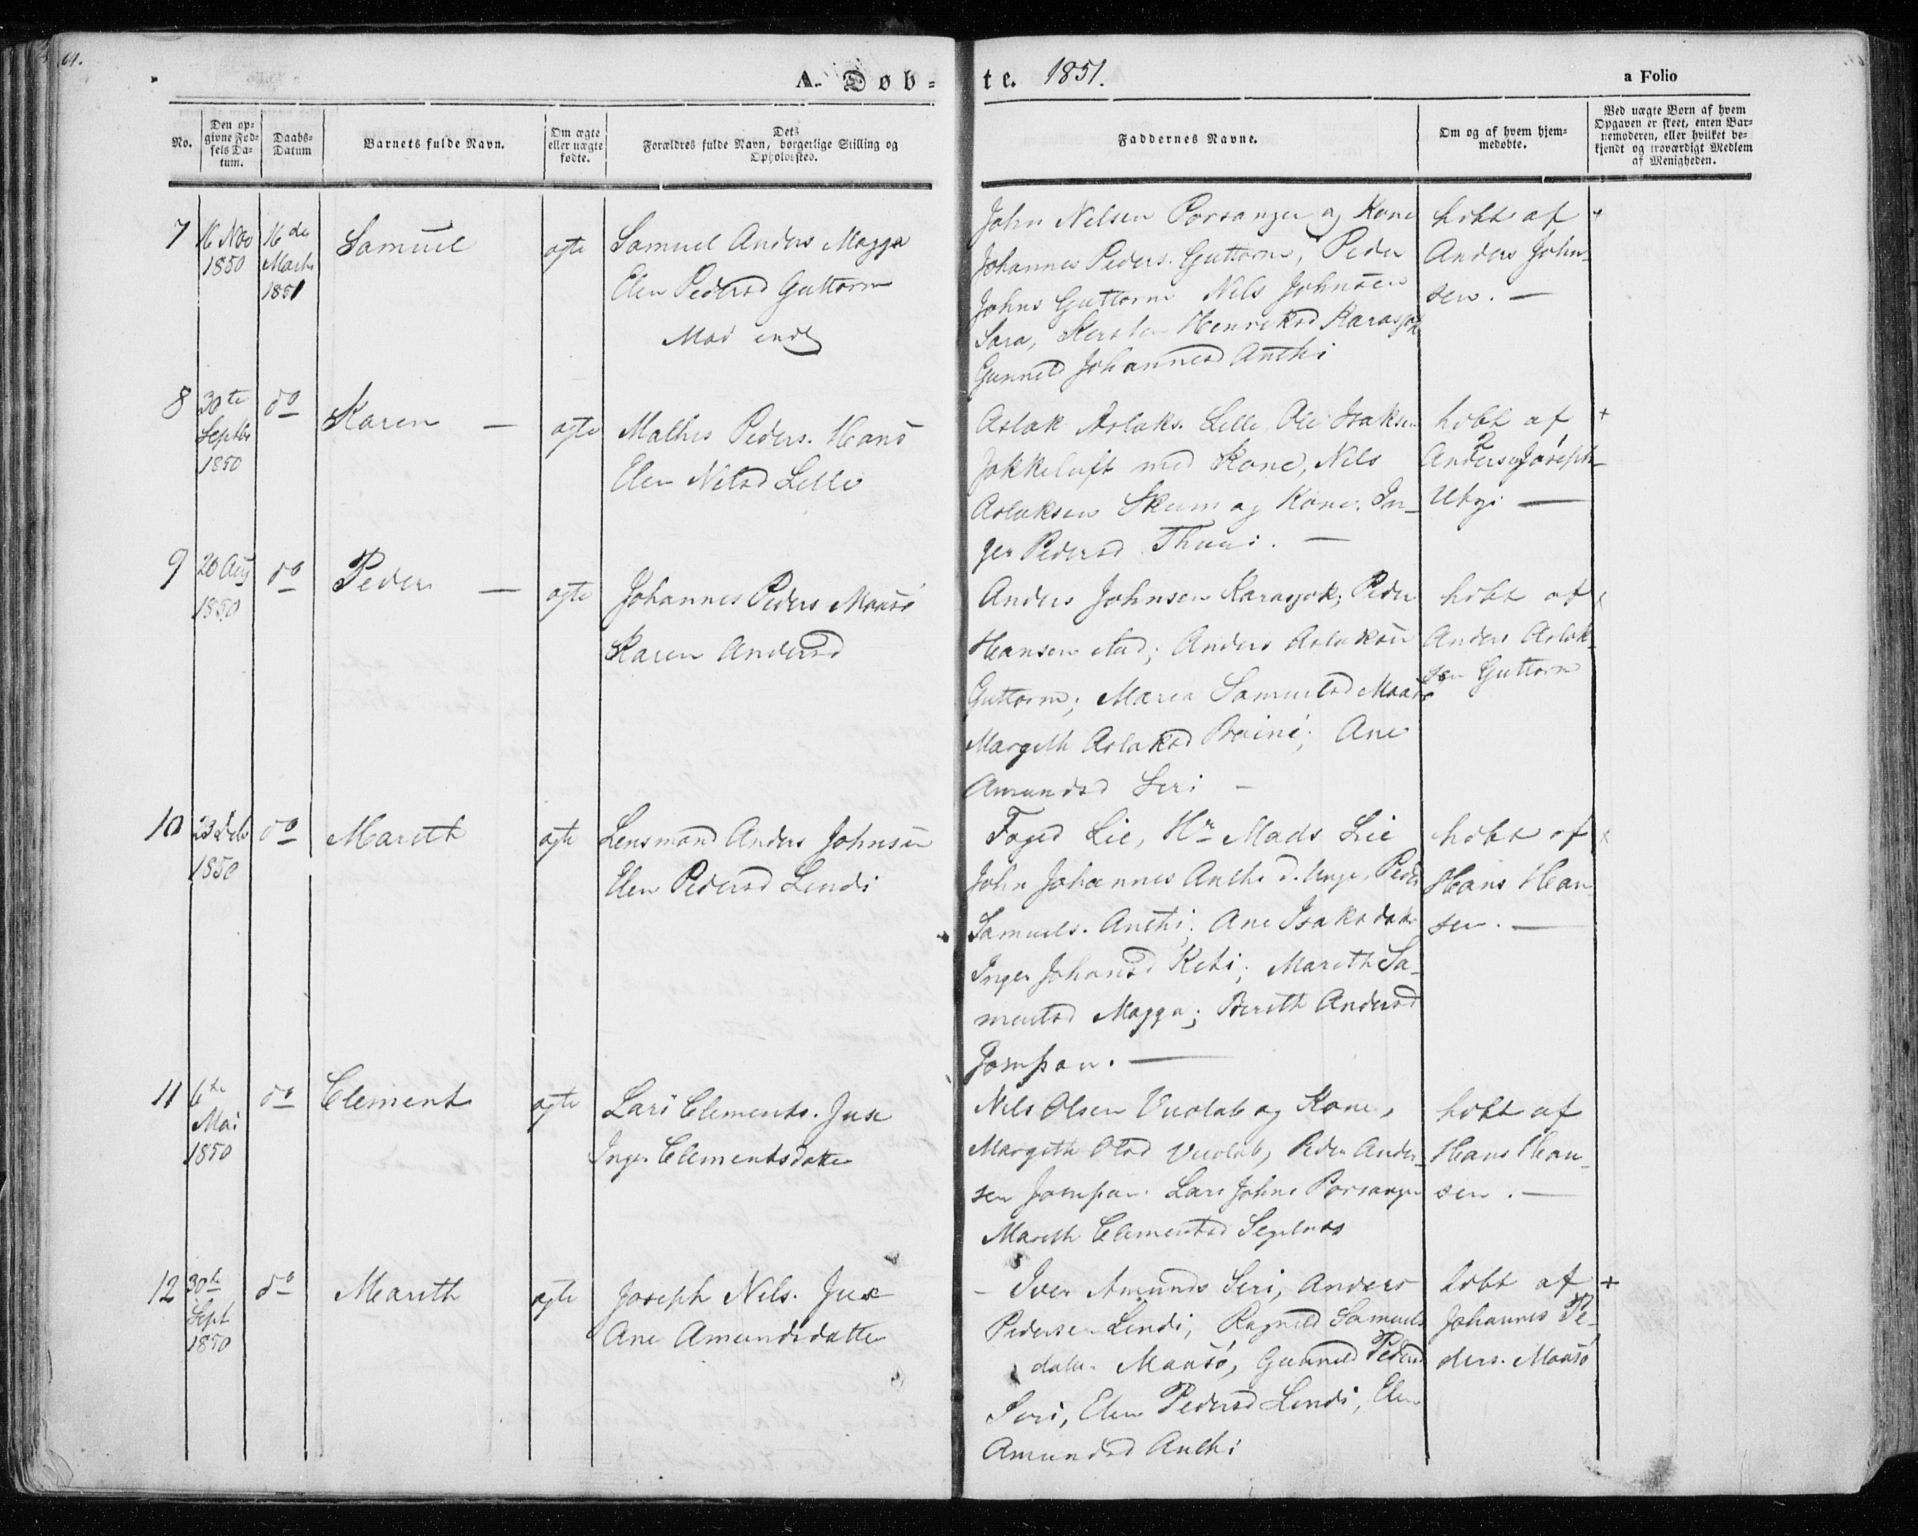 A. Døb=
te. 1851.
a Folio
No.
Den op-
givne Fød-
sels Da-
tum.
Daabs-
Datum
Barnets fulde Navn.
Om ægte
eller uægte
fødte.
Dets
Forældres fulde Navn, borgerlige Stilling og
Opholdsted.
Faddernes Navne.
Om og af hvem hjem-
medøbte.
Ved uægte Børn af hvem
Opgaven er skeet, enten Bar-
nemoderen, eller hvilket be-
kjendt og troværdigt Medlem
af Menigheden.
7
16 Nov
1850
16 de
Marts
1851
Samuel
ægte
Samuel Anders Magga
Elen Pedersd Guttorm
John Nelsen Porsanger og Kone
Johannes Peders. Guttorm, Peder
Johns Guttorm Nils Johnsen
Sara, Kersten Henriksd Karasjok
Gunneld Johannesd Anthi
døbt af
Anders John-
sen. —
8
30te
Septbr
1850
do
Karen —
ægte
Mathis Peders. Hans
Elen Nilsd Lelle
Aslak Aslaks. Lelle, Ole Isaksen
Jokkeluft med Kone, Nils
Aslaksen Skum og Kone. In-
ger Pedersd Thuri. —
døbt af
Anders Joseph-
Utsi —
+
9
20 Aug
1850
do
Peder —
ægte
Johannes Peders Maasø
Karen Andersd
Anders Johnsen Karasjok, Peder
Hansen stad; Anders Aslaksen
Guttorm; Maren Samuelsd Maasø
Margeth Aslaksd; Ane
Amundsd Seri —
døbt af
Anders Aslak-
sen Guttorm
10
23 Feb
1850
do
Mareth
ægte
Lensmand Anders Johnsen
Elen Pedersd Lendi
Foged Lie, Hr Mads Lie
John Johannes Anthi d. Unge, Peder
Samuels. Anthi; Ane Isaksdatr
Inger Johansd Keti; Mareth Sa-
muelsd Magga; Bereth Andersd
Jompan. —
døbt af
Hans Han-
sen. —
11
6te
Mai
1850
do
Clement
ægte
Lars Clements. Jux
Inger Clementsdatter
Nils Olsen Vuolab og Kone,
Margethe Olsd Vuolab, Peder Ander-
sen Jompan. Lars Johns Porsanger
Mareth Clementsd Segelnæs
døbt af
Hans Han-
sen. —
12
30te
Sept
1850
do
Mareth
ægte
Joseph Nils. Jux
Ane Amundsdatter
— Iver Amunds Seri, Anders
Pedersen Lendi, Ragnild Samuels
datter Maasø, Gunneld Pedersd
Seri, Elen Pedersd Lendi, Elen
Amundsd Anthi
døbt af
Johannes Pe-
ders. Maasø
+